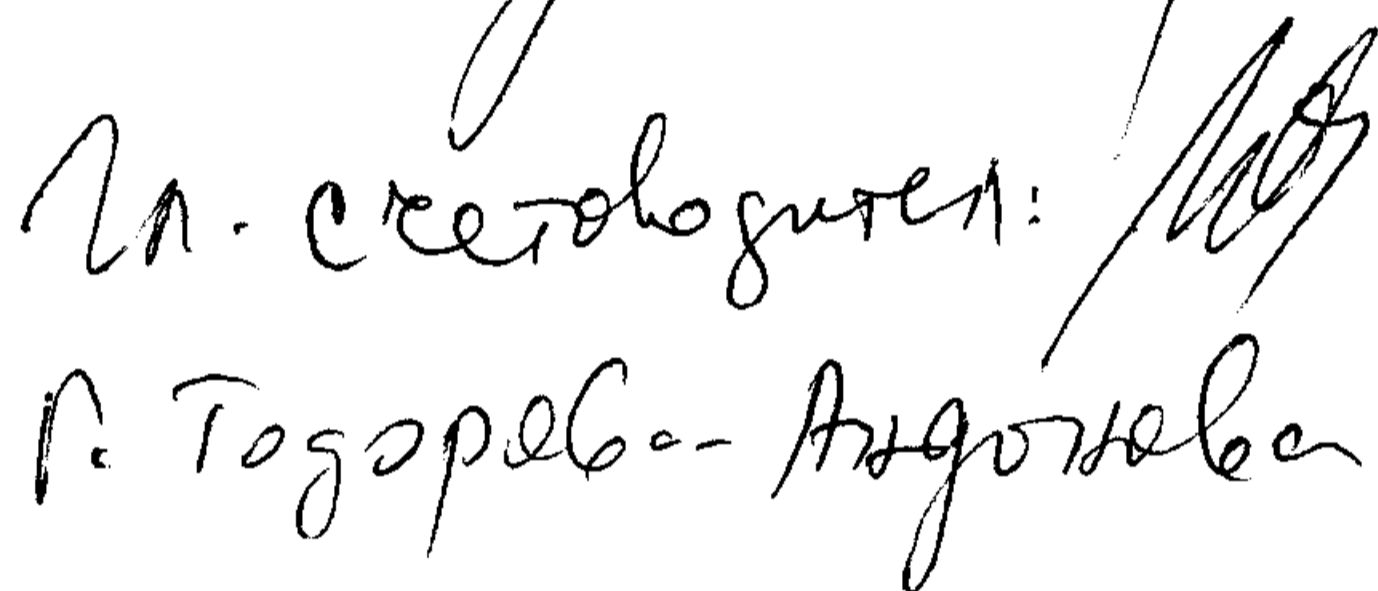 Гл. счетоводител:
Г. Тодорова-Андонова